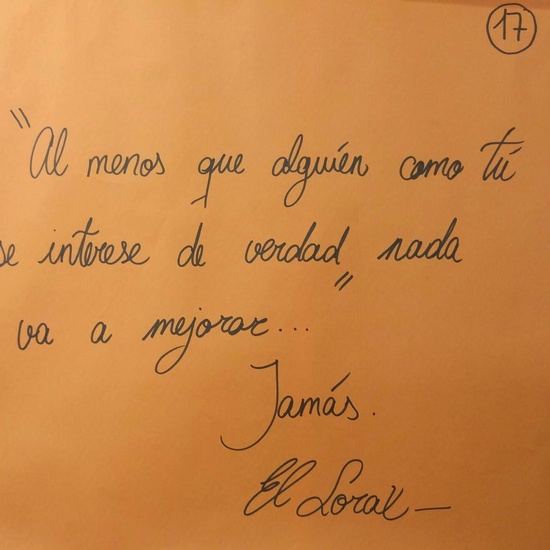 17
"Al menos que alguién como tú
se interese de verdad, nada
va a mejorar..."
Jamás.
El Lorax –